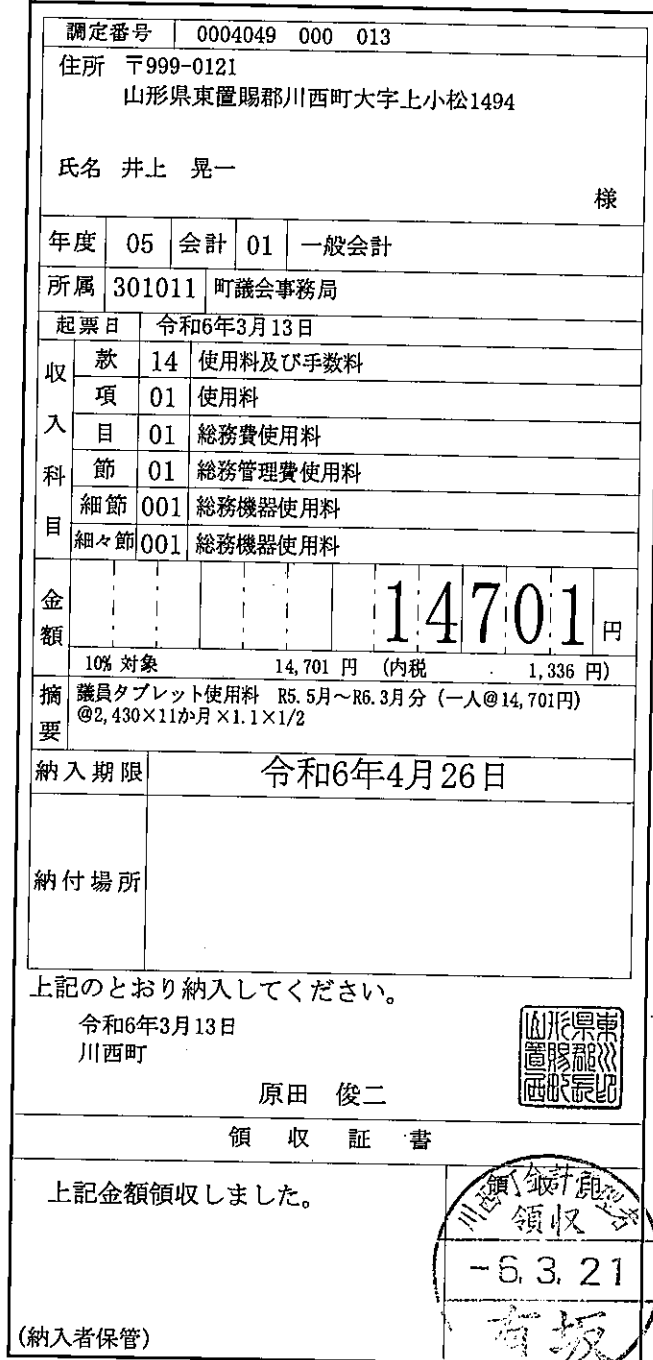 調定番号 0004049 000 013
住所 〒999-0121
山形県東置賜郡川西町大字上小松1494
氏名 井上 晃一
様
年度 05 会計 01 一般会計
所属 301011 町議会事務局
起票日 令和6年3月13日
収入科目
款 14 使用料及び手数料
項 01 使用料
目 01 総務費使用料
節 01 総務管理費使用料
細節 001 総務機器使用料
細々節 001 総務機器使用料
金額 14701 円
10% 対象 14,701 円 (内税 1,336 円)
摘要 議員タブレット使用料 R5.5月～R6.3月分 (一人@14,701円)
@2,430×11か月×1.1×1/2
納入期限 令和6年4月26日
納付場所
上記のとおり納入してください。
令和6年3月13日
川西町
原田 俊二
山形県東置賜郡川西町長印
領収証書
上記金額領収しました。
領収
-6.3.21
有坂
(納入者保管)